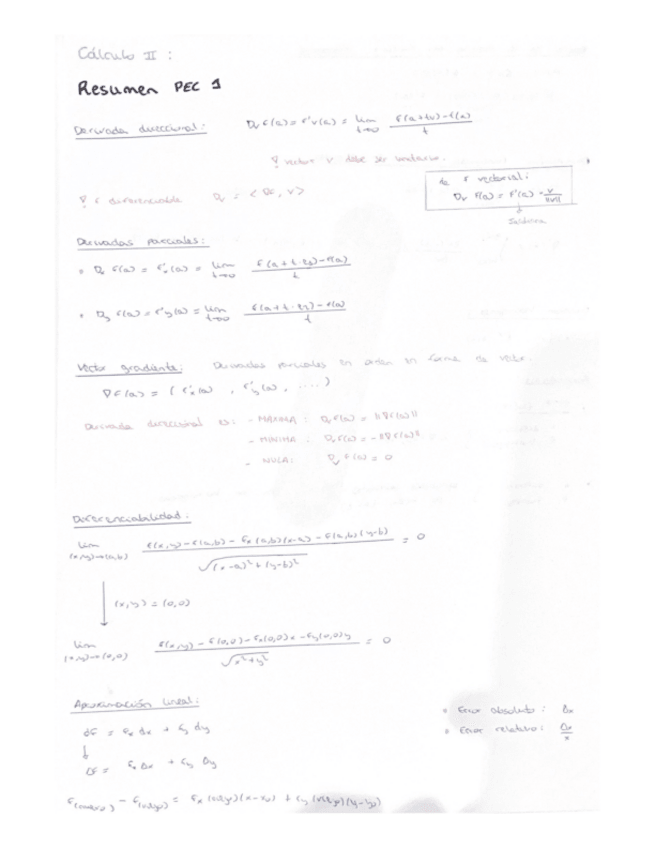 Cálculo II :
Resumen PEC 1
Derivada direccional: Dv f(a) = f'v(a) = lim t→0 f(a+tv)-f(a) / t
vector v debe ser unitario.
f diferenciable Dv = < ∇f, v >
de f vectorial:
Dv f(a) = f'(a) · v / ||v||
Derivadas parciales:
Dx f(a) = f'x(a) = lim t→0 f(a + t·e1) - f(a) / t
Dy f(a) = f'y(a) = lim t→0 f(a + t·e2) - f(a) / t
Vector gradiente: Derivadas parciales en orden en forma de vector.
∇f(a) = ( f'x(a) , f'y(a) , .... )
Derivada direccional es: - MÁXIMA : Dv f(a) = ||∇f(a)||
- MÍNIMA : Dv f(a) = -||∇f(a)||
- NULA: Dv f(a) = 0
Diferenciabilidad:
lim (x,y)→(a,b) f(x,y) - f(a,b) - fx(a,b)(x-a) - f(a,b)(y-b) / √(x-a)² + (y-b)² = 0
(x,y) = (0,0)
lim (x,y)→(0,0) f(x,y) - f(0,0) - fx(0,0)x - fy(0,0)y / √x²+y² = 0
Aproximación lineal:
df = fx dx + fy dy
Δf = fx Δx + fy Δy
Error absoluto : Δx
Error relativo : Δx / x